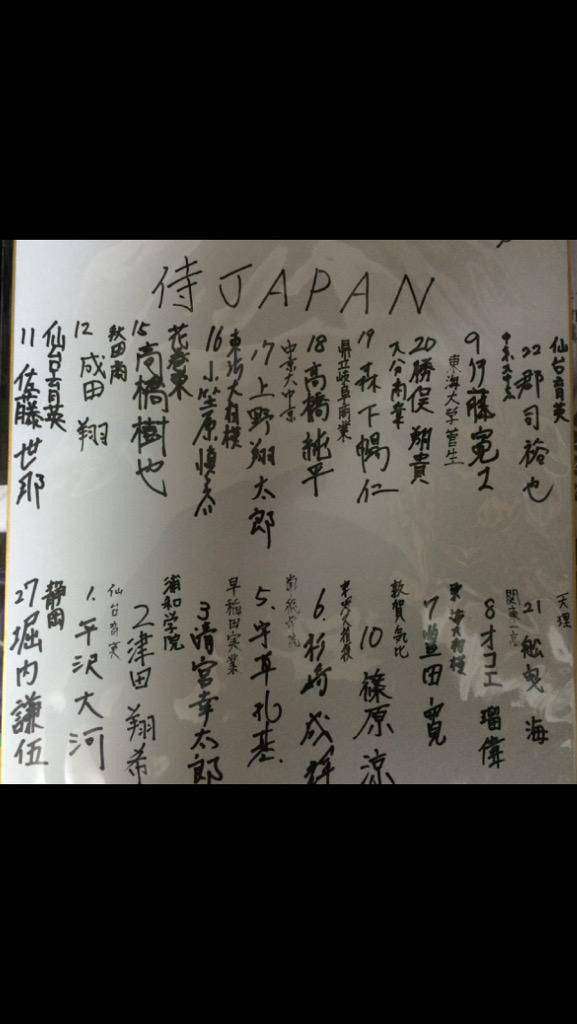 侍JAPAN
仙台育英
22 郡司裕也
9 伊藤寛士
東海大学菅生
20 勝俣翔貴
大分商業
19 森下暢仁
県立岐阜商業
18 高橋純平
中京大中京
17 上野翔太郎
東海大相模
16 小笠原慎之介
花巻東
15 高橋樹也
秋田商
12 成田 翔
仙台育英
11 佐藤世那
天理
21 舩曳 海
関東一高
8 オコエ 瑠偉
東海大相模
7 豊田 寛
敦賀気比
10 篠原涼
6. 杉崎成輝
常総学院
5. 宇草孔基
早稲田実業
3 清宮幸太郎
浦和学院
2 津田 翔希
仙台育英
1. 平沢大河
静岡
27 堀内謙伍